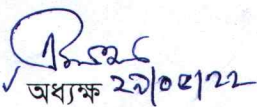 অধ্যক্ষ ২১/০৫/২২